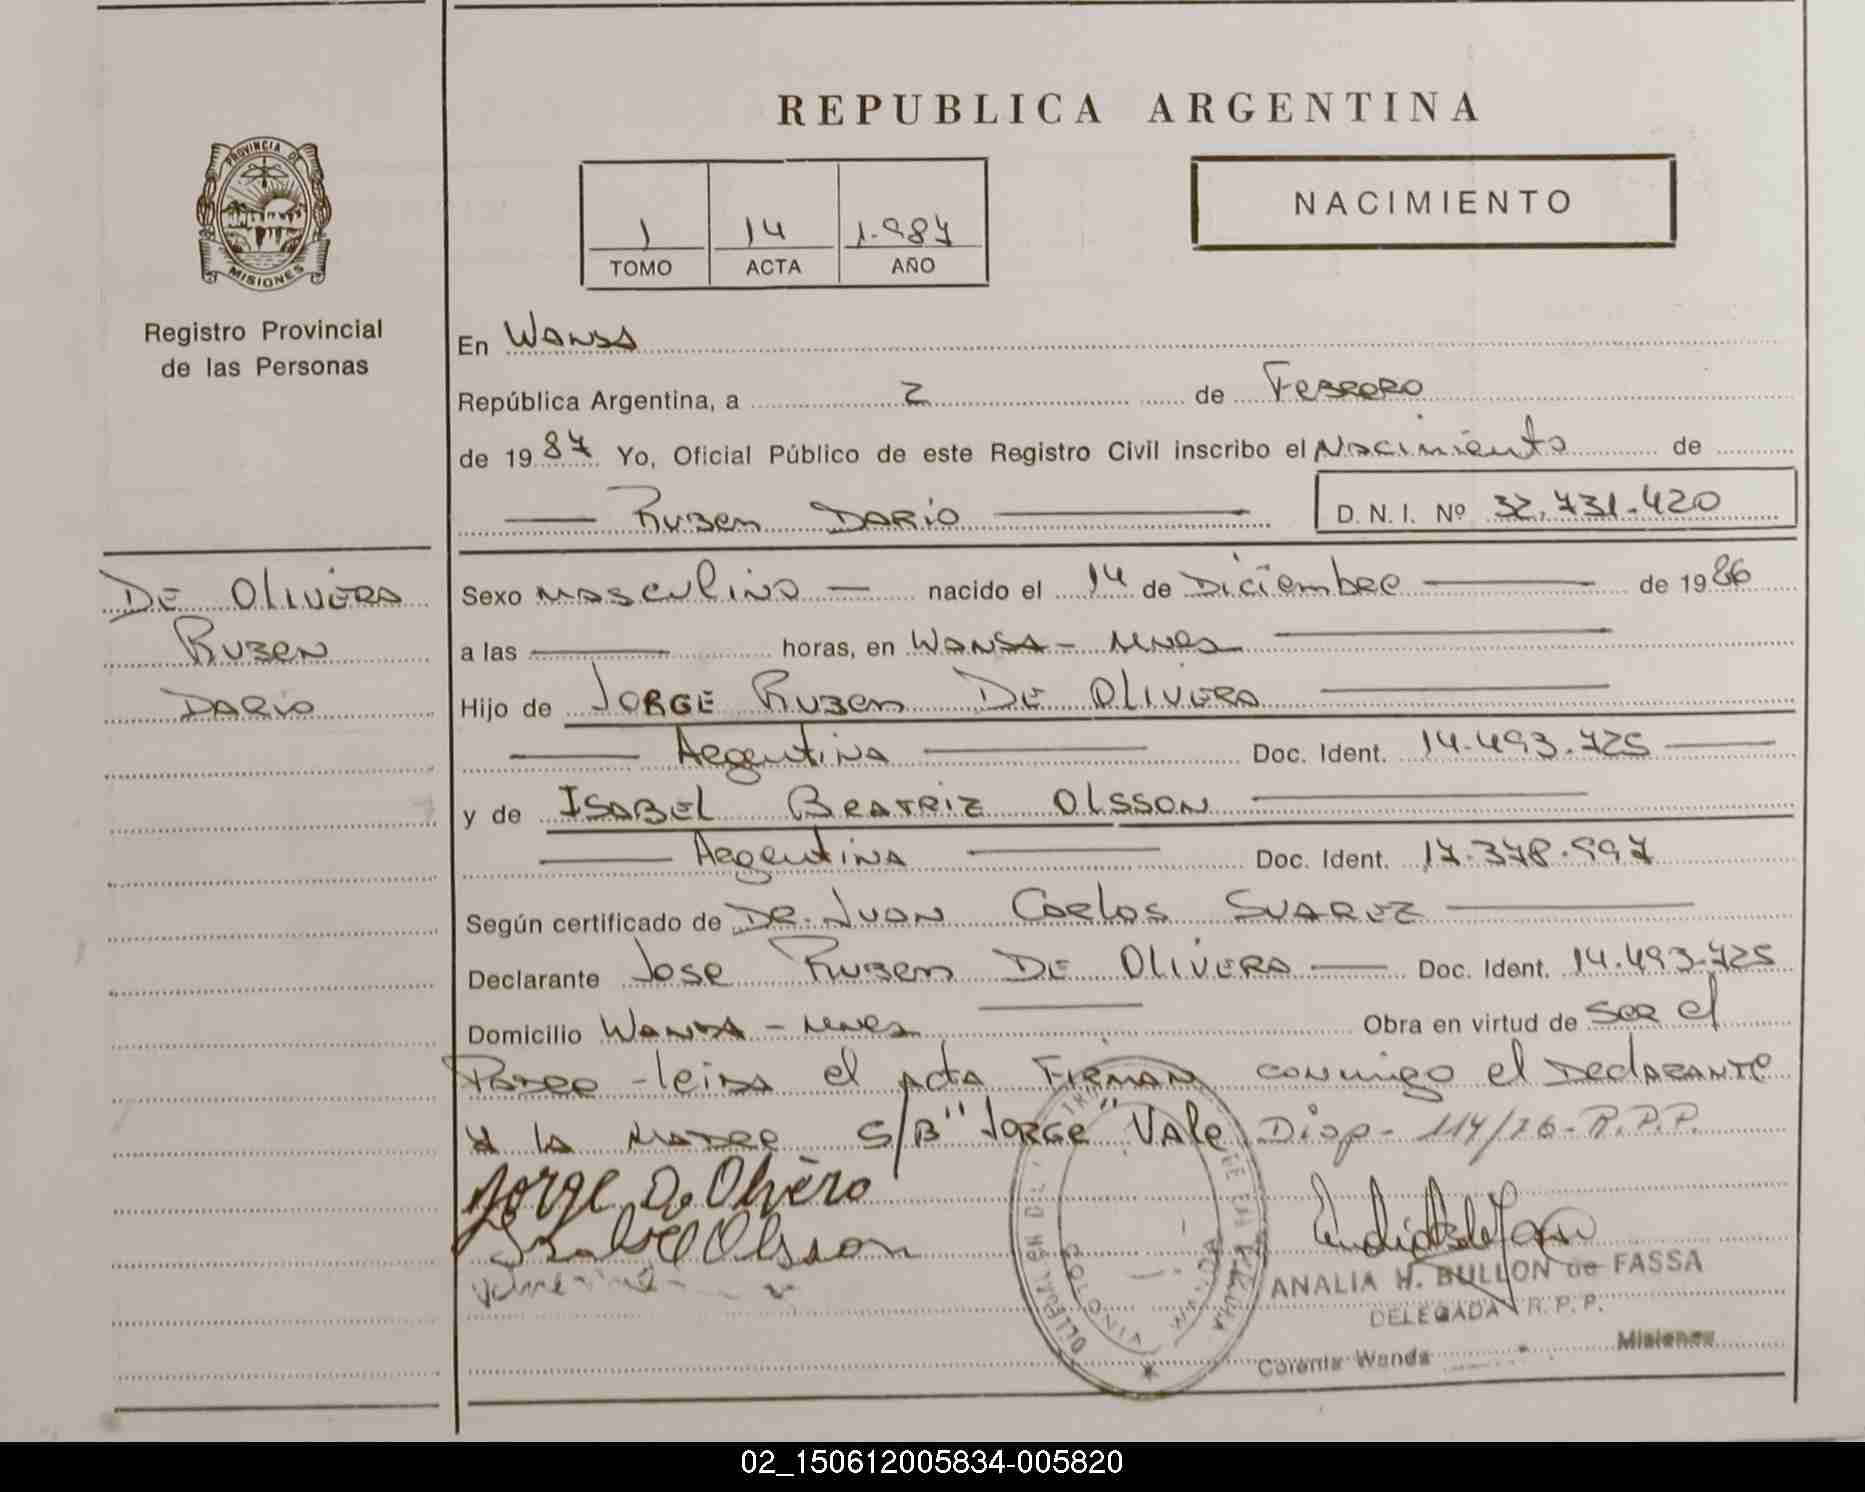 REPUBLICA ARGENTINA
PROVINCIA DE MISIONES
Registro Provincial
de las Personas
1 14 1.987
TOMO ACTA AÑO
NACIMIENTO
En WANDA
República Argentina, a 2 de Febrero
de 1987 Yo, Oficial Público de este Registro Civil inscribo el Nacimiento de
RUBEN DARIO D. N. I. Nº 32.731.420
DE OLIVERA
RUBEN
DARIO
Sexo MASCULINO nacido el 14 de Diciembre de 1986
a las horas, en WANDA - Mnes
Hijo de JORGE RUBEN DE OLIVERA
Argentina Doc. Ident. 14.493.725
y de ISABEL BEATRIZ OLSSON
Argentina Doc. Ident. 17.378.997
Según certificado de DR. JUAN CARLOS SUAREZ
Declarante JOSE RUBEN DE OLIVERA Doc. Ident. 14.493.725
Domicilio WANDA - Mnes Obra en virtud de ser el
Padre - leida el acta FIRMAN conmigo el DECLARANTE
y la MADRE S/B "JORGE" Vale Disp - 114/26 - R.P.P.
Jorge D. Olivera
Isabel Olsson
ANALIA H. BULLON de FASSA
DELEGADA R. P. P.
Colonia Wanda Misiones
WANDA
02_150612005834-005820